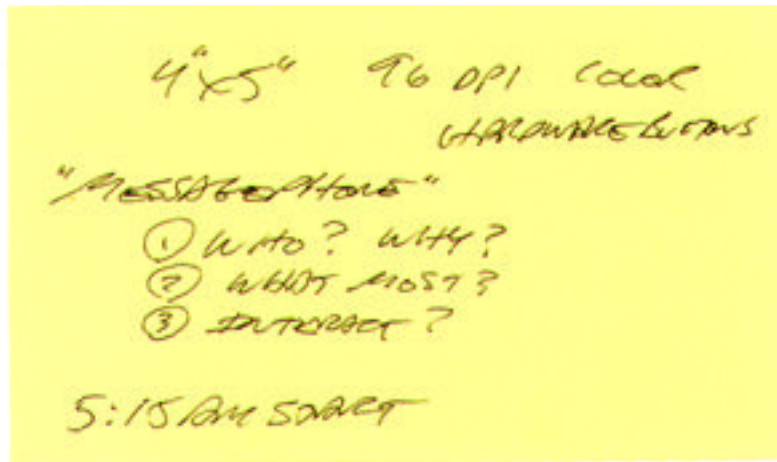 4"x5" 96 DPI COLOR
HARDWARE BUTTONS
"MESSAGEPHONE"
① WHO? WHY?
② WHAT MOST?
③ INTERACT?
5:15 AM START